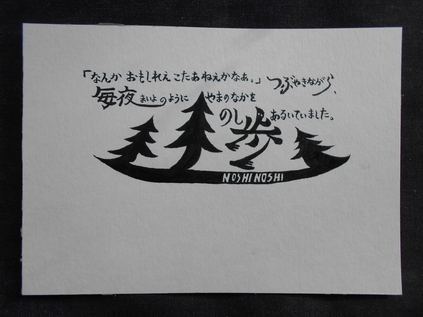 「なんか おもしれえ こたあねえかなあ。」 つぶやきながら、
毎夜まいよのように やまのなかを
のし歩あるいていました。
NOSHI NOSHI